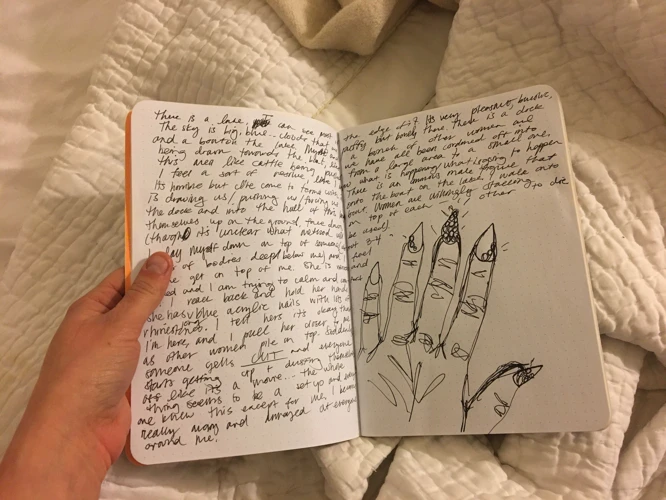 There is a lake, I can see most
The sky is big, blue... clover that
and a boat on the lake. Myself and
being drawn towards the boat, like
this area like cattle being
I feel a sort of passive, like
Its horrible but I've come to terms with
is drawing us/ pushing us/
the dock and into the hull of this
themselves up on the ground, three deep
(though it's unclear what
I lay myself down on top of
of bodies deep below me) and
get on top of me. She is
and I am trying to calm and
reach back and hold her hand
She has long blue acrylic nails with lots of
rhinestones. I tell her its okay that
I'm here, and I pull her closer to me
as other women pile on top. Suddenly
someone yells CUT and everyone
starts getting up + dusting themselves
off like its a movie... the whole
thing seems to be a set up and every
one knew this except for me, I become
really angry and annoyed at everyone
around me.
the edge of it. Its very pleasant, bucolic,
pretty but lonely there. There is a dock
a bunch of other women and
we have all been corralled off into
from a large area to a small one,
us what is happening, what is going to happen
There is an ominous male figure that
onto the boat on the lake, I walk onto
boat. Women are willingly stacking
on top of each other to die
be used).
about 3-4
feel
and